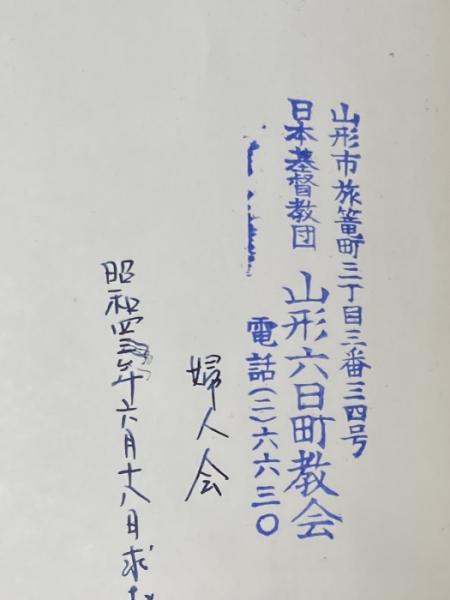 山形市旅篭町三丁目三番三四号
日本基督教団 山形六日町教会
電話(二)六六三〇
婦人会
昭和四三年六月十八日求